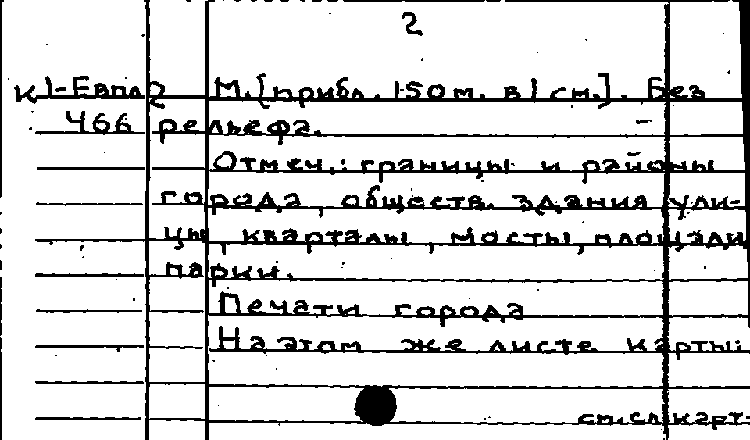 2
К 1-Евпл2 М. [прибл. 150 м. в 1 см.]. Без
466 рельефа.
Отмеч.: границы и районы
города, обществ. здания, ули-
цы, кварталы, мосты, площади,
парки.
Печати города
На этом же листе карты:
см. сл. карт.